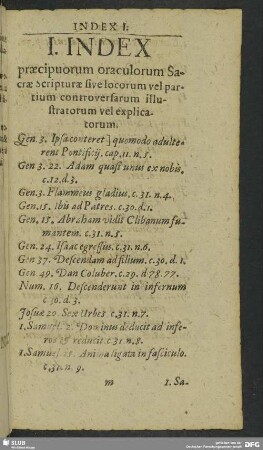 INDEX I.
I. INDEX
præcipuorum oraculorum Sa-
cræ Scripturæ sive locorum vel par-
tium controversarum illu-
stratorum vel explica-
torum.
Gen. 3. Ipsa conteret] quomodo adulte-
rent Pontificij. cap. 11. n. 5.
Gen 3. 22. Adam quasi unus ex nobis,
c. 12. d. 3.
Gen. 3. Flammeus gladius. c. 31. n. 4.
Gen. 15. Ibis ad Patres. c. 30. d. 1.
Gen. 15. Abraham vidit Clibanum fu-
mantem. c. 31. n. 5.
Gen. 24. Isaac egressus. c. 31. n. 6.
Gen 37. Descendam ad filium. c. 30. d. 1.
Gen. 49. Dan Coluber. c. 29. d 78. 77.
Num. 16. Descenderunt in infernum
c 30. d. 3.
Josuæ 20. Sex Urbes. c. 31. n. 7.
1. Samuel. 2. Dominus deducit ad infe-
ros & reducit. c 31. n. 8.
1. Samuel. Anima ligata in fasciculo.
c. 31. n. 9.
m 1. Sa-
SLUB
DFG